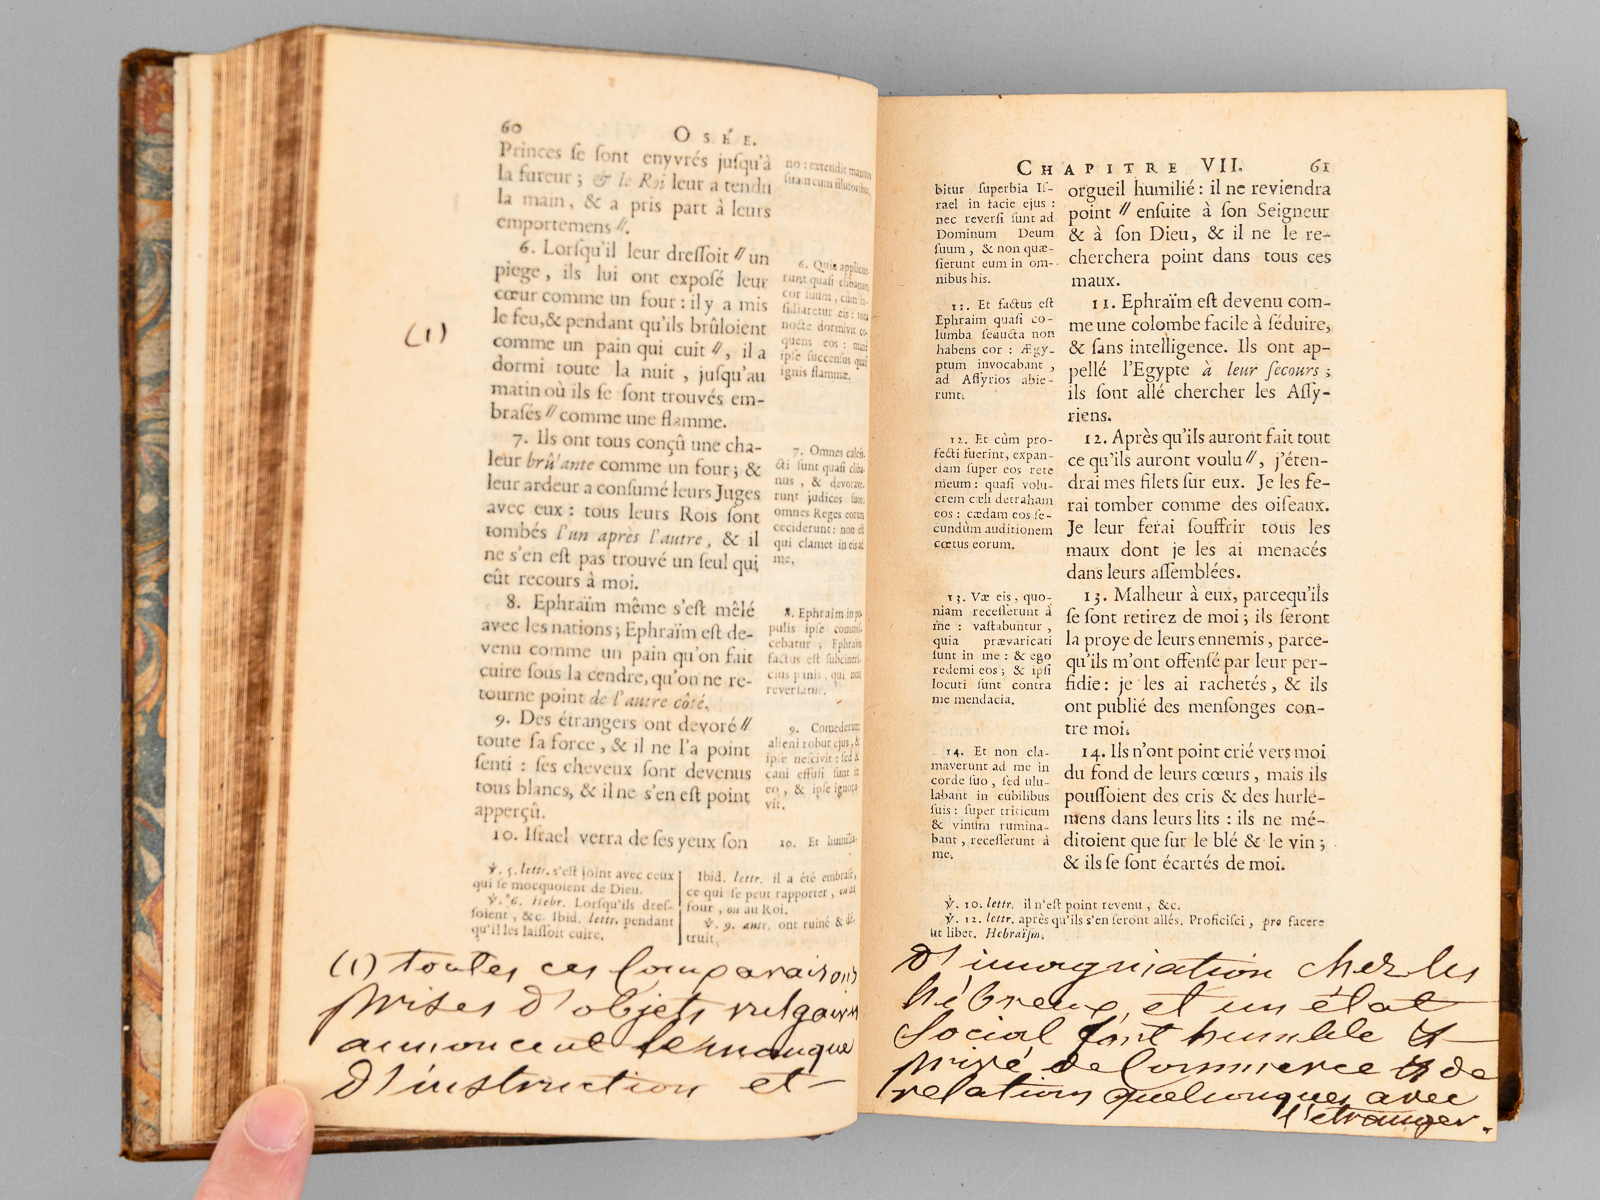 60 OSÉE.
Princes se sont enyvrés jusqu'à
la fureur ; & le Roi leur a tendu
la main, & a pris part à leurs
emportemens //.
6. Lorsqu'il leur dressoit // un
piege, ils lui ont exposé leur
cœur comme un four : il y a mis
le feu, & pendant qu'ils brûloient
comme un pain qui cuit //, il a
dormi toute la nuit, jusqu'au
matin où ils se sont trouvés em-
brasés // comme une flamme.
7. Ils ont tous conçû une cha-
leur brûlante comme un four ; &
leur ardeur a consumé leurs Juges
avec eux : tous leurs Rois sont
tombés l'un après l'autre, & il
ne s'en est pas trouvé un seul qui
eût recours à moi.
8. Ephraïm même s'est mêlé
avec les nations ; Ephraïm est de-
venu comme un pain qu'on fait
cuire sous la cendre, qu'on ne re-
tourne point de l'autre côté.
9. Des étrangers ont devoré //
toute sa force, & il ne l'a point
senti : ses cheveux sont devenus
tous blancs, & il ne s'en est point
apperçû.
10. Israel verra de ses yeux son
(1)
no : extendit manum
suam cum illusoribus.
6. Quia applicue-
runt quasi clibanum
cor suum, cum in-
sidiaretur eis : tota
nocte dormivit co-
quens eos : mane
ipse succensus quasi
ignis flammæ.
7. Omnes calefa-
cti sunt quasi cliba-
nus, & devorave-
runt judices suos :
omnes Reges eorum
ceciderunt : non est
qui clamet in eis ad
me.
8. Ephraim in po-
pulis ipse commis-
cebatur ; Ephraim
factus est subcineri-
cius panis, qui non
reversatur.
9. Comederunt
alieni robur ejus, &
ipse nescivit : sed &
cani effusi sunt in
eo, & ipse ignora-
vit.
10. Et humilia-
℣. 5. lettr. s'est joint avec ceux
qui se mocquoient de Dieu.
℣. 6. Hebr. Lorsqu'ils dres-
soient, &c. Ibid. lettr. pendant
qu'il les laissoit cuire.
Ibid. lettr. il a été embrasé,
ce qui se peut rapporter, ou au
four, ou au Roi.
℣. 9. autr. ont ruiné & dé-
truit.
(1) toutes ces Comparaisons
prises d'objets vulgaires
annoncent le manque
d'instruction et
CHAPITRE VII. 61
bitur superbia Is-
rael in facie ejus :
nec reversi sunt ad
Dominum Deum
suum, & non quæ-
sierunt eum in om-
nibus his.
11. Et factus est
Ephraim quasi co-
lumba seducta non
habens cor : Ægy-
ptum invocabant,
ad Assyrios abie-
runt.
12. Et cùm pro-
fecti fuerint, expan-
dam super eos rete
meum : quasi volu-
crem cæli detraham
eos : cædam eos se-
cundùm auditionem
cœtus eorum.
13. Væ eis, quo-
niam recesserunt à
me : vastabuntur,
quia prævaricati
sunt in me : & ego
redemi eos ; & ipsi
locuti sunt contra
me mendacia.
14. Et non cla-
maverunt ad me in
corde suo, sed ulu-
labant in cubilibus
suis : super triticum
& vinum rumina-
bant, recesserunt à
me.
orgueil humilié : il ne reviendra
point // ensuite à son Seigneur
& à son Dieu, & il ne le re-
cherchera point dans tous ces
maux.
11. Ephraïm est devenu com-
me une colombe facile à séduire,
& sans intelligence. Ils ont ap-
pellé l'Egypte à leur secours ;
ils sont allé chercher les Assy-
riens.
12. Après qu'ils auront fait tout
ce qu'ils auront voulu //, j'éten-
drai mes filets sur eux. Je les fe-
rai tomber comme des oiseaux.
Je leur ferai souffrir tous les
maux dont je les ai menacés
dans leurs assemblées.
13. Malheur à eux, parcequ'ils
se sont retirez de moi ; ils seront
la proye de leurs ennemis, parce-
qu'ils m'ont offensé par leur per-
fidie : je les ai rachetés, & ils
ont publié des mensonges con-
tre moi.
14. Ils n'ont point crié vers moi
du fond de leurs cœurs, mais ils
poussoient des cris & des hurle-
mens dans leurs lits : ils ne mé-
ditoient que sur le blé & le vin ;
& ils se sont écartés de moi.
℣. 10. lettr. il n'est point revenu, &c.
℣. 12. lettr. après qu'ils s'en seront allés. Proficisci, pro facere
ut libet. Hebraïsm.
d'imagination chez les
hébreux, et un état
social fort humble &
privé de Commerce & de
relations quelconques avec
l'étranger.